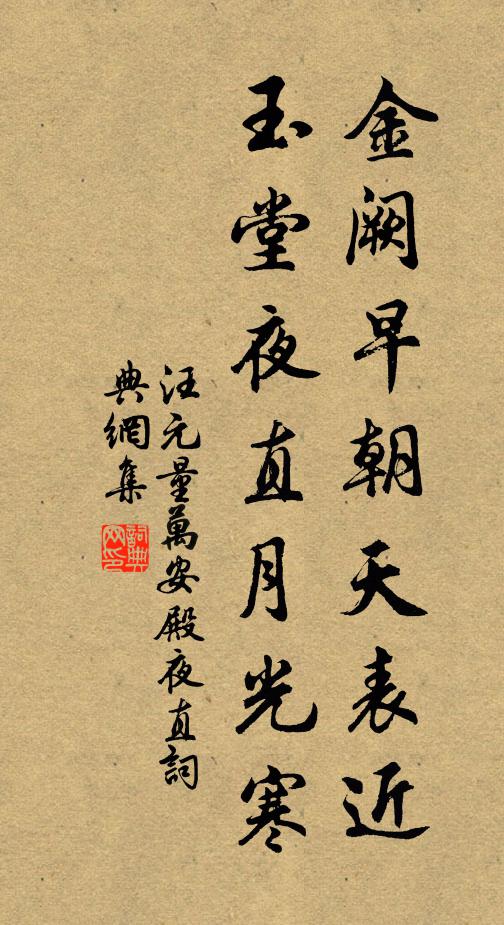 金阙早朝天表近
玉堂夜直月光寒
汪元量萬安殿夜直詞
典網集
詞典
网印